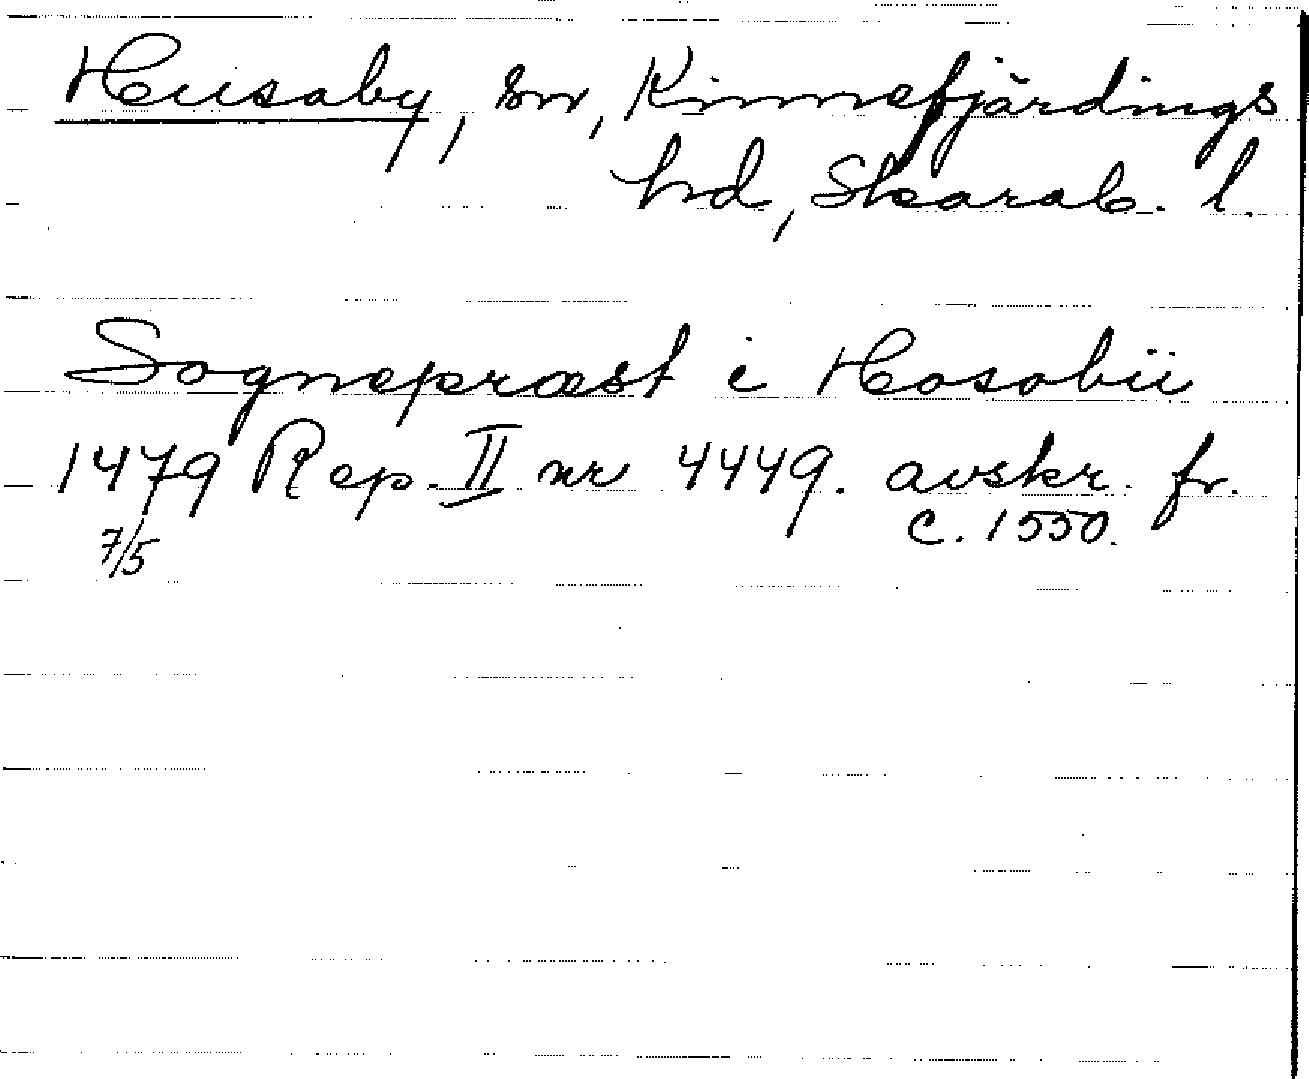 Husaby, sn, Kinnefjärdings
hd, Skarab. l.
Sognepræst i Hosobii
1479 Rep. II nr 4449. avskr. fr.
7/5 c. 1550.